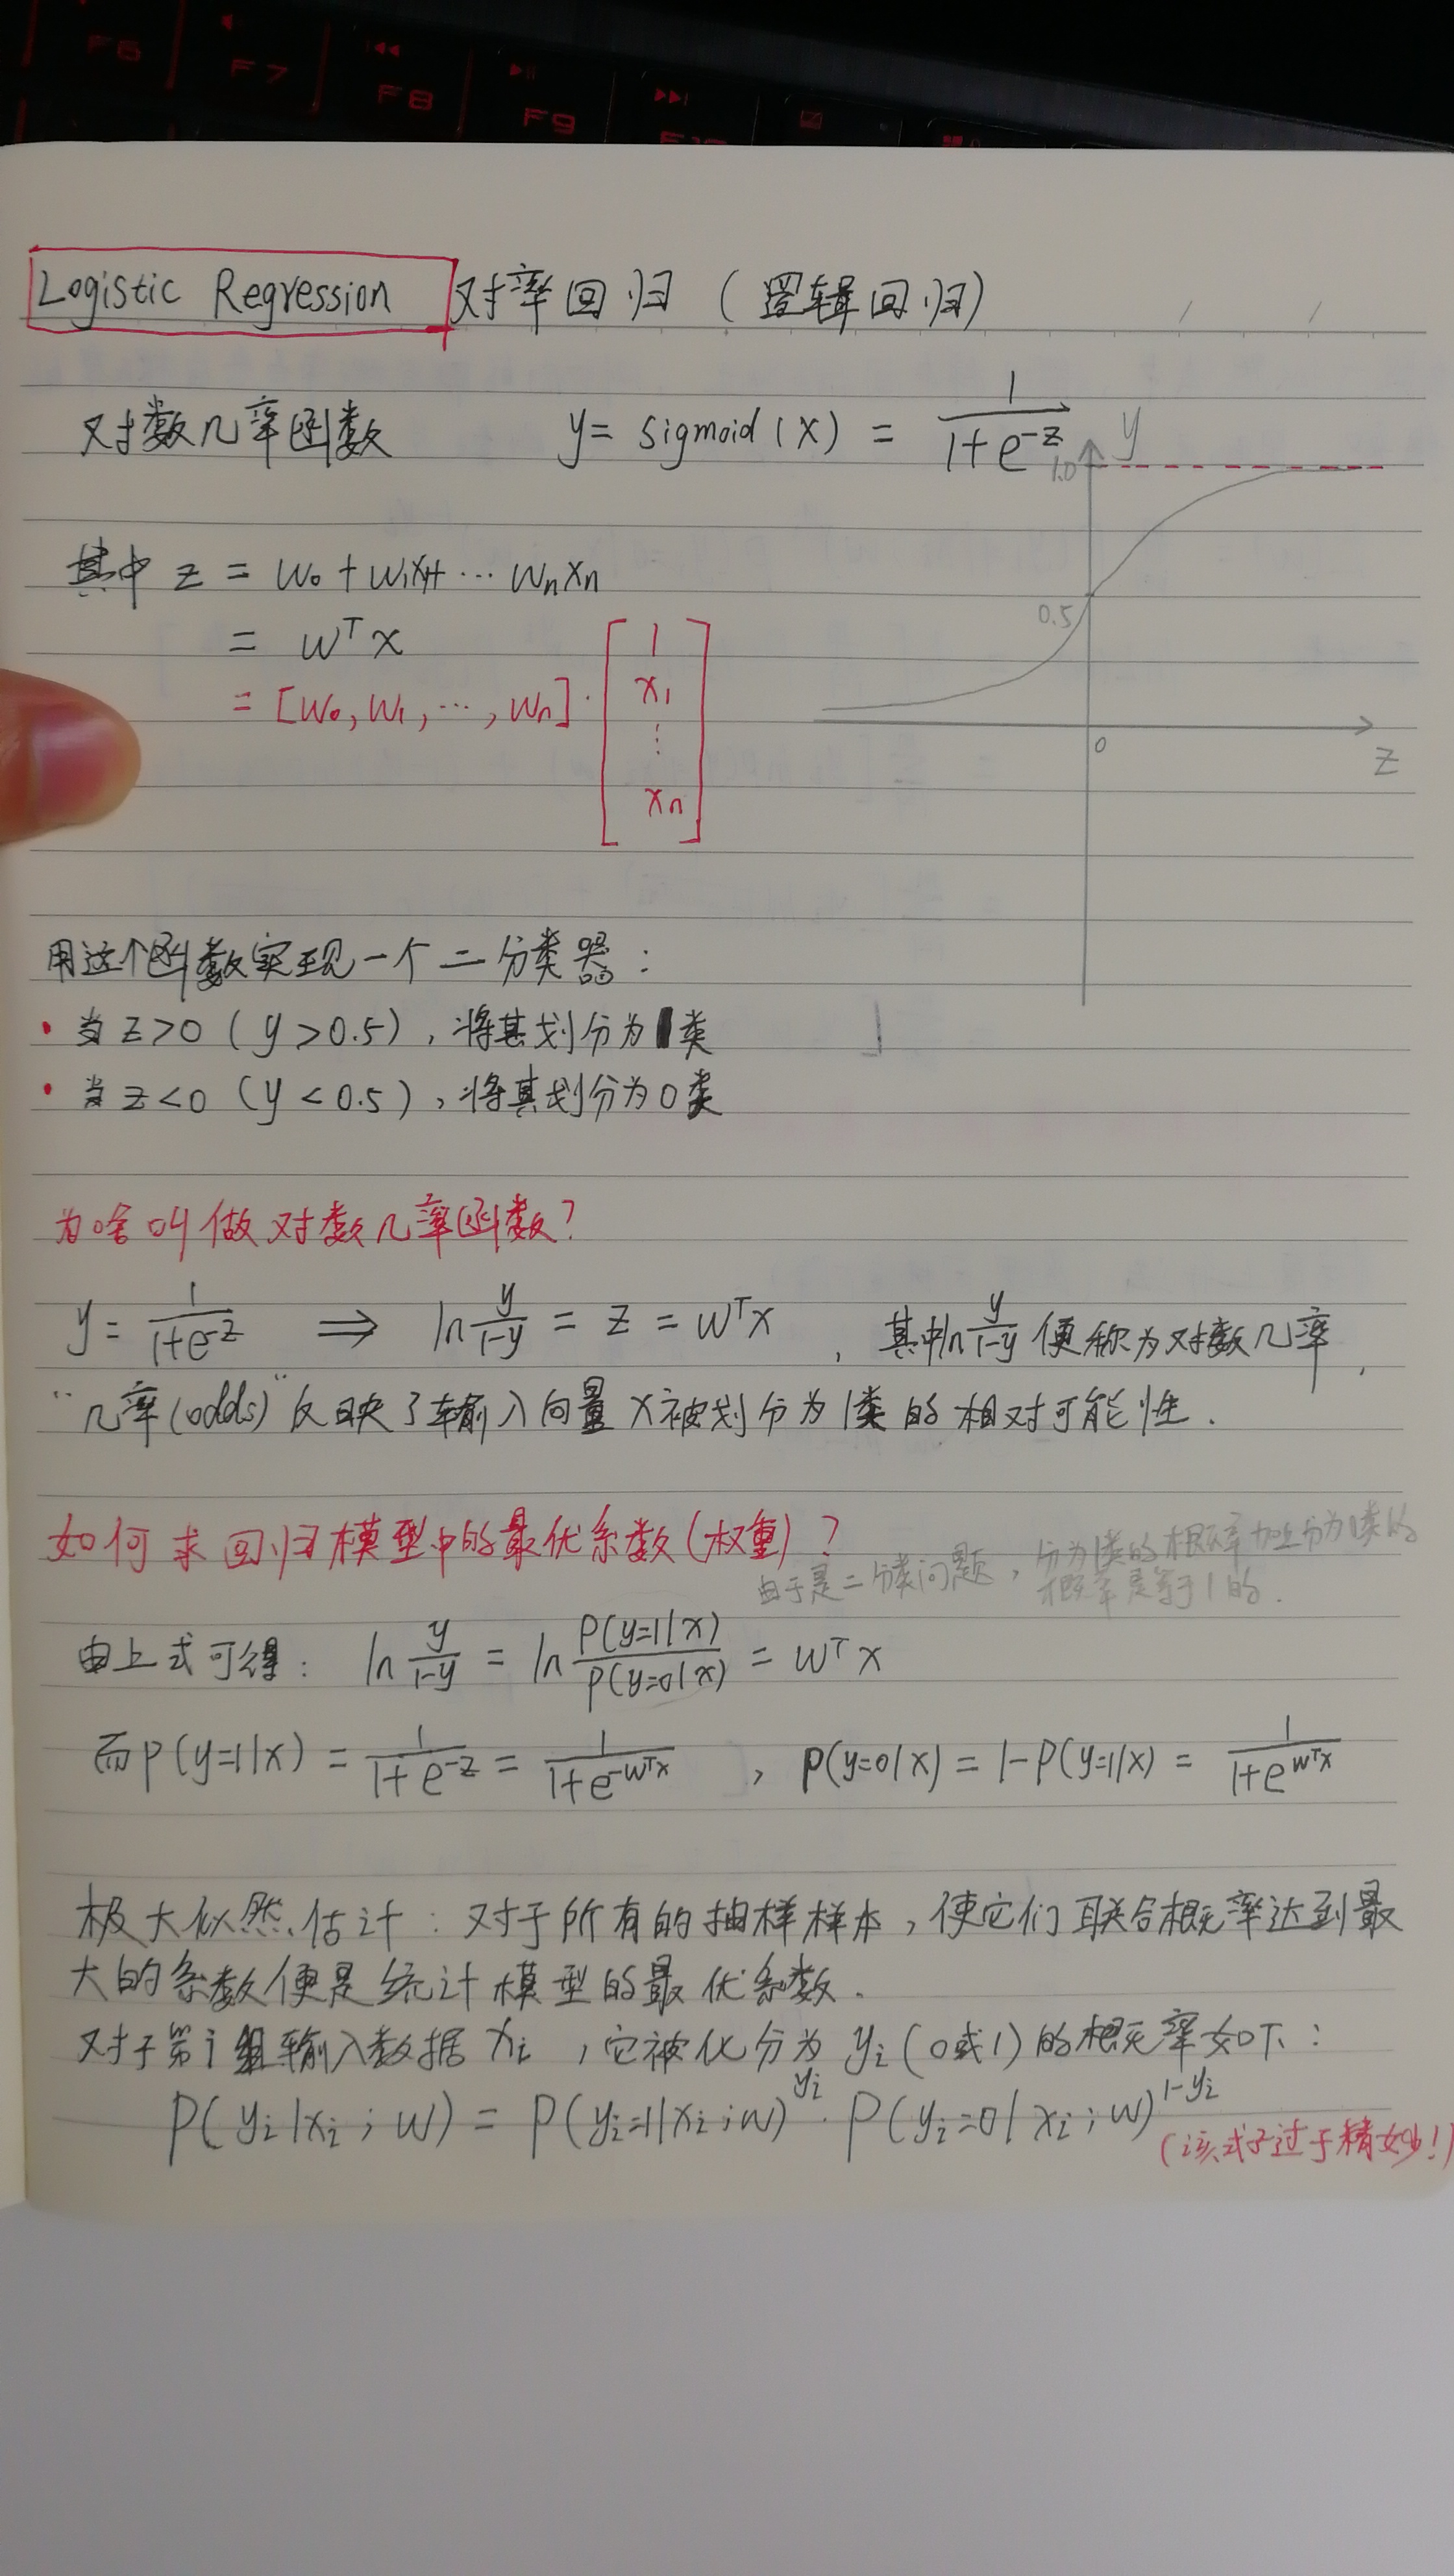 F6 F7 F8 F9 F10
Logistic Regression 对率回归 (逻辑回归)
对数几率函数 y = sigmoid(x) = 1/(1+e^-z)
y
1.0
0.5
0
z
其中 z = w₀ + w₁x₁+ ⋯ wₙxₙ
= wᵀx
= [w₀, w₁, ⋯, wₙ] · [1 x₁ ⋮ xₙ]
用这个函数实现一个二分类器:
• 当 z>0 (y>0.5), 将其划分为1类
• 当 z<0 (y<0.5), 将其划分为0类
为啥叫做对数几率函数?
y = 1/(1+e^-z) ⇒ ln y/(1-y) = z = wᵀx , 其中ln y/(1-y) 便称为对数几率,
“几率(odds)”反映了输入向量x被划分为1类的相对可能性.
如何求回归模型中的最优系数(权重)?
由于是二分类问题, 分为1类的概率加上分为1类的
概率是等于1的.
由上式可得: ln y/(1-y) = ln P(y=1|x)/P(y=0|x) = wᵀx
而P(y=1|x) = 1/(1+e^-z) = 1/(1+e^-wᵀx) , P(y=0|x) = 1-P(y=1|x) = 1/(1+e^wᵀx)
极大似然估计: 对于所有的抽样样本, 使它们联合概率达到最
大的系数便是统计模型的最优系数.
对于第i组输入数据xᵢ, 它被化分为yᵢ(0或1)的概率如下:
P(yᵢ|xᵢ; w) = P(yᵢ=1|xᵢ; w)^yᵢ · P(yᵢ=0|xᵢ; w)^1-yᵢ
(该式子过于精妙!)